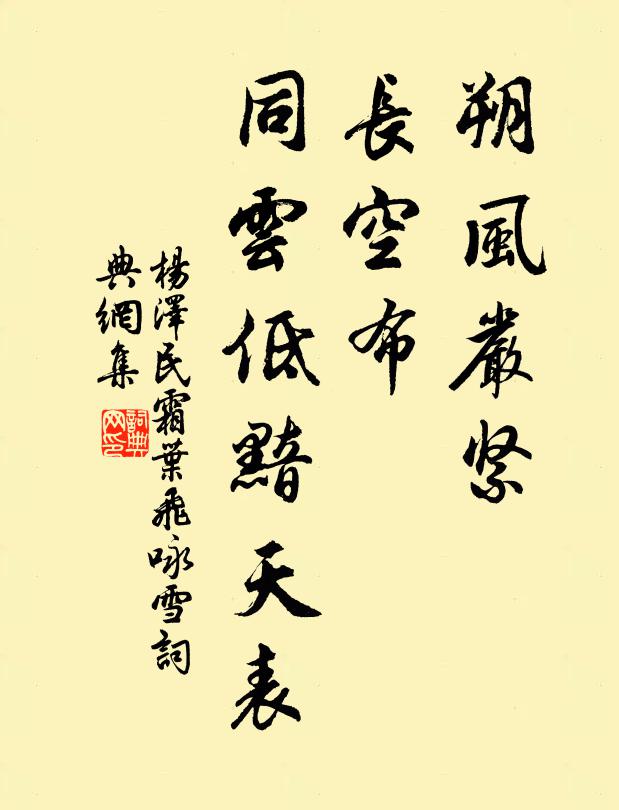 朔風嚴緊
長空布
同雲低黯天表
楊澤民霜葉飛咏雪詞
典網集
詞典
网印